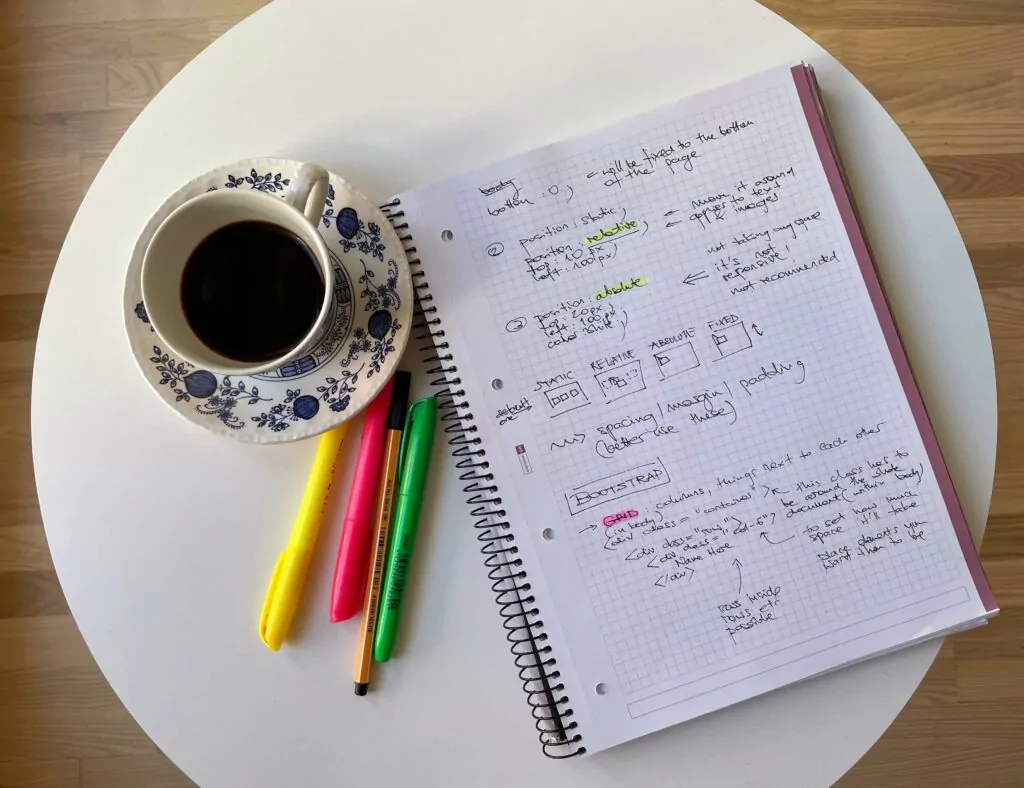 body
bottom : 0; = will be fixed to the bottom
of the page
② position : static;
position : relative;
top : 10 px;
left : 100 px;
= move it around
applies to text
& images
③ position : absolute
top : 20px;
left : 100 px;
color: white;
not taking any space
it's not
responsive!
not recommended
default
one
STATIC RELATIVE ABSOLUTE FIXED
spacing / margin / padding
(better use these)
BOOTSTRAP
→ GRID : columns, things next to each other
(in body)
<div class = "container">
this class has to
be around the whole
document (within body)
<div class = "row">
<div class = "col-6">
Name Here
</div>
to set how much
space it'll take
place elements you
want them to be
rows inside
rows etc
possible